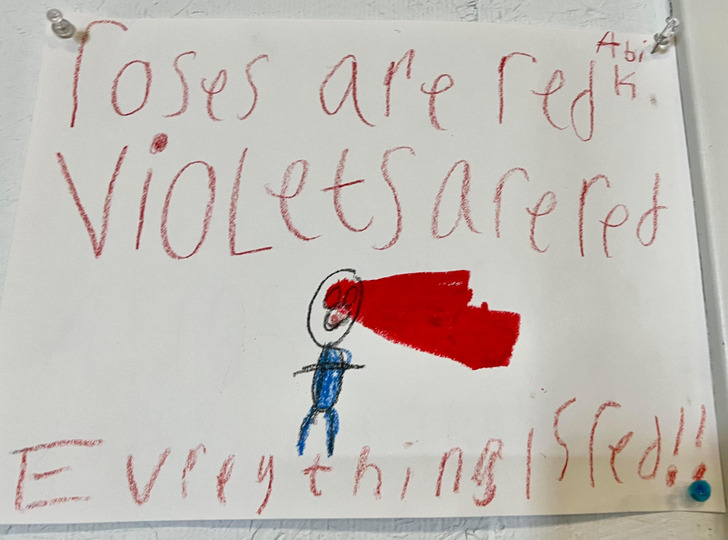 roses are red
Abi
K.
VioLets are red
Evreything IS red!!